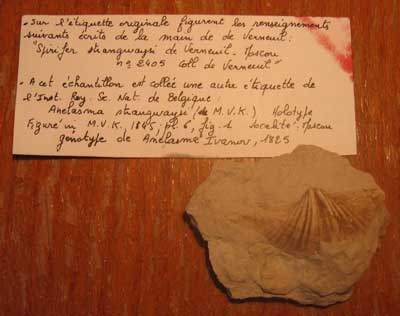 • Sur l'étiquette originale figurent les renseignements
suivants écrits de la main de de Verneuil:
"Spirifer strangwaysi de Verneuil. Moscou
n° 2405 Coll de Verneuil"
• A cet échantillon est collée une autre étiquette de
l'Inst. Roy. Sc. Nat. de Belgique:
Anelasma strangwaysi (de M.V.K.) Holotype
Figuré in M.V.K. 1845. pl. 6, fig. 1 Localité: Moscou
génotype de Anelasma Ivanov, 1925